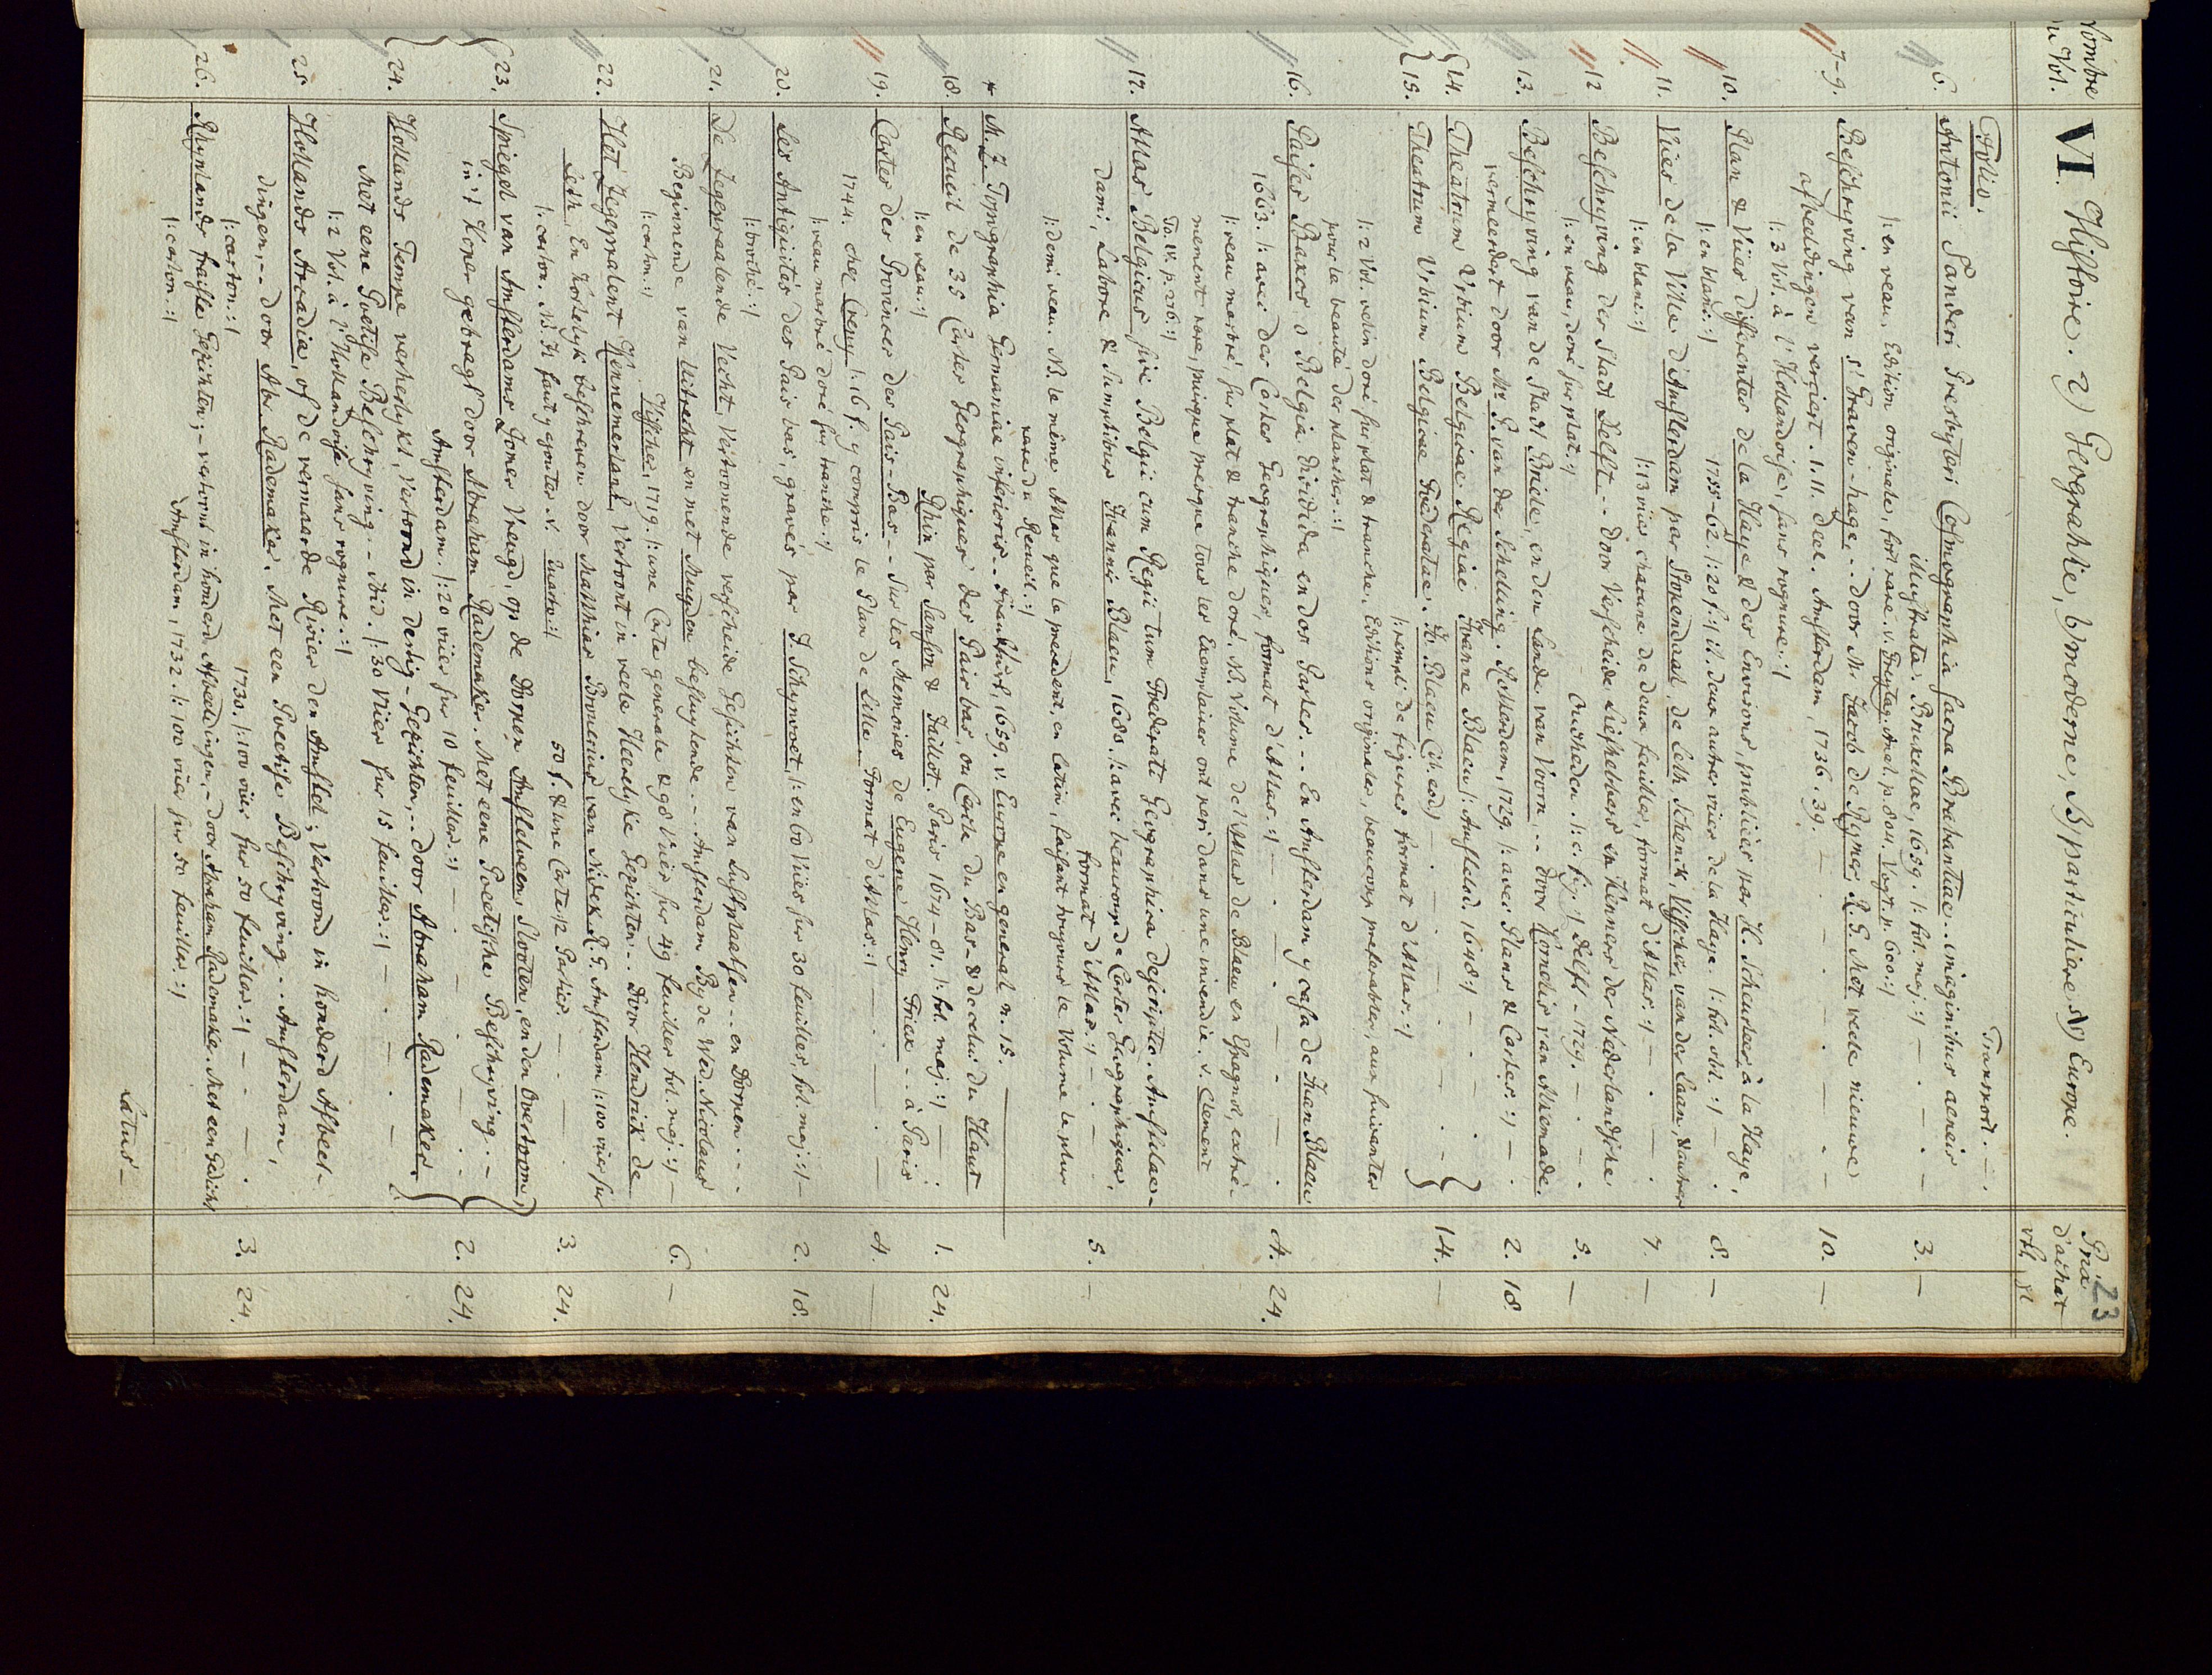 23
Nombre du Vol.
VI. Histoire. 2) Geographie, b) moderne, β) particuliere, א) Europe.
Prix d'achat
rtl. gl
Folio.
Transport. —
6. Antonii Sanderi Presbyteri Cosmographia sacra Brabantiae .. imaginibus aeneis
illustrata. Bruxellae, 1659. /: fol. maj :/ — . — . — 3. —
/: en veau, Edition originale, fort rare. v. Freytag. Anal. p. 801. Vogt. p. 600 :/
7-9. Beschryving van s' Graven-hage, .. door Mr. Jacob de Rymer R. G. Met veele nieuwe
afbeeldingen verciert. 1. 11. deel. Amsterdam, 1736. 39. — . — . — 10. —
/: 3 Vol. à l'Hollandoise, sans rognure :/
10. Plan & Vües differentes de la Haye & des Environs, publiées par H. Scheurleer à la Haye,
1755-62. /: 20 f. :/ it. deux autres vües de la Haye. /: fol. obl. :/ — . 8. —
/: en blanc :/
11. Vües de la Ville d'Amsterdam par Stopendaal, de Leth, Schenck, Visscher, van der Laan, & autres
/: 13 vües chacune de deux feuilles, format d'Atlas :/ — . — 7. —
/: en blanc :/
12 Beschryving der Stadt Delft .. door Verscheide Liefhebbers en Kenners der Nederlandsche
Oudheden. /: c. fig. :/ Delft - 1729. — . — . 5. —
/: en veau, doré sur plat :/
13. Beschryving van de Stadt Briele, en den Lande van Voorn .. door Kornelis van Alkemade.
vermeerdert door Mr. P. van der Schelling. Rotterdam, 1729. /: avec Plans & Cartes :/ — . 2. 18.
14. Theatrum Urbium Belgicae Regiae Joanne Blaeu /: Amstelod. 1648 :/ — . — .
15. Theatrum Urbium Belgicae Foederatae. Jo. Blaeu (ib. eod.) — . — . — . 14. —
/: rempli de figures format d'Atlas :/
/: 2 Vol. velin doré sur plat & tranche, Editions originales, beaucoup preferables, aux suivantes
pour la beauté des planches :/
16. Paises Baxos o Belgia dividida en dos Partes ... En Amsterdam y casa de Juan Blaeu
1663. /: avec des Cartes Geographiques, format d'Atlas :/ — . — . — . 4. 24.
/: veau marbré, sur plat & tranche doré. NB. Volume de l'Atlas de Blaeu en Espagnol, extré-
mement rare, puisque presque tous les Exemplaires ont peri dans une incendie. v. Clement
To. IV. p. 276. :/
17. Atlas Belgicus sive Belgii cum Regii tum Foederati Geographica descriptio. Amstelae-
dami, Labore & Sumptibus Joannis Blaeu, 1680. /: avec beaucoup de Cartes Geographiques,
format d'Atlas :/ — . — . 5. —
/: demi veau. NB. le même Atlas que le precedent, en latin, faisant toujours le Volume le plus
rare du Recueil :/
* M. Z. Topographia Germaniae inferioris .. Franckfurt, 1659. v. Europe en general n. 15.
18. Recueil de 35 Cartes Geographiques des Pais bas, ou Carte du Bas- & de celui du Haut
Rhin par Sanson & Jaillot. Paris 1674-81. /: fol. maj :/ — . 1. 24.
/: en veau :/
19. Cartes des Provinces des Pais-Bas .. sur les Memoires de Eugene Henry Friex .. à Paris
1744. chez Crepy. /: 16 f. y compris le Plan de Lille. Format d'Atlas :/ — . — 4. —
/: veau marbré doré sur tranche :/
20. Les Antiquités des Pais bas, gravés par J. Schynvoet, /: en 60 Vües sur 30 feuilles, fol. maj :/ — 2. 18.
/: broché :/
21. De Zegepraalende Vecht Vertoonende verscheide Gesichten van Lustplaatsen .. en Dorpen ...
Beginnende van Uitrecht en met Muyden besluytende ... Amsterdam By de Wed. Nicolaus
Visscher, 1719. /: une Carte generale & 98 Vües sur 49 feuilles fol. maj :/ — 6. —
/: carton :/
22. Het Zegepralent Kennemerland Vertoont in veele Heerelyke Gezichten .. door Hendrik de
Leth, En Kortelyk beschreven door Matthias Brouerius van Nidek R. G. Amsterdam /: 100 vües sur
50 f. & une Carte /2 Parties — . — . 3. 24.
/: carton. NB. Il faut y ajouter N. Quarto :/
23. Spiegel van Amsterdams Zomer Vreugd, op de Dorpen Amstelveen, Slooten, en den Overtoom,
in't Koper gebragt door Abraham Rademaker. Met eene Poetische Beschryving. . —
Amsterdam. /: 20 vües sur 10 feuilles :/ — . — . . 2. 24.
24. Hollands Tempe verheerlykt, Vertoond in dertig-Gezichten, .. door Abraham Rademaker.
Met eene Poetise Beschryving .. ibid. /: 30 Vües sur 15 feuilles :/ — . — . —
/: 2 Vol. à l'Hollandoise sans rognure :/
25. Hollands Arcadia, of de vermaarde Rivier den Amstel; Vertoond in honderd Afbeel-
dingen, .. door Ab. Rademaker. Met een Poetise Beschryving .. Amsterdam,
1730. /: 100 vües sur 50 feuilles :/ — . — . 3. 24.
/: carton :/
26. Rhynlands fraiste Gezichten; - vertoond in honderd Afbeeldingen, - door Abraham Rademaker. Met een Gedicht
Amsterdam, 1732. /: 100 vües sur 50 feuilles :/
/: carton :/
Latus —